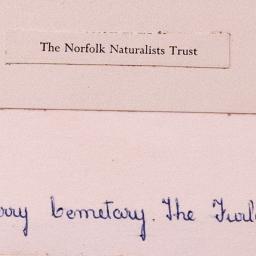 The Norfolk Naturalists Trust
Cemetary. The